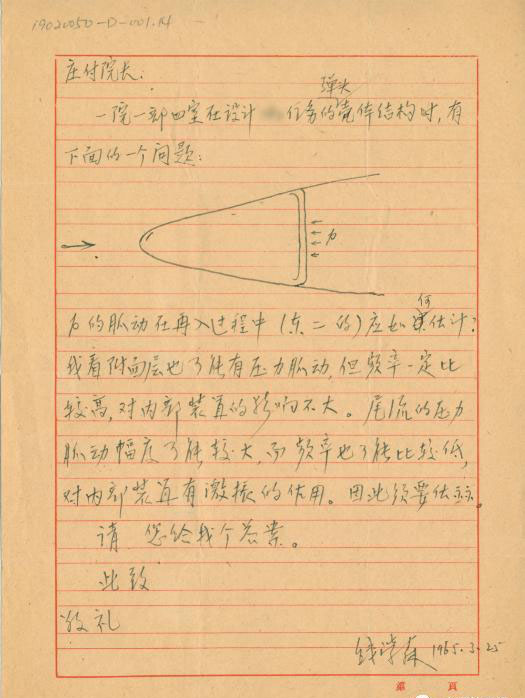 19020050-D-001.14
庄付院长：
弹头
一院一部四室在设计 任务的壳体结构时，有
下面的一个问题：
p
p的脉动在再入过程中（东二的）应如何估计？
我看附面层也可能有压力脉动，但频率一定比
较高，对内部装置的影响不大。尾流的压力
脉动幅度可能较大，而频率也可能比较低，
对内部装置有激振的作用。因此须要估计。
请 您给我个答案。
此致
敬礼
钱学森 1965.3.25
第 頁